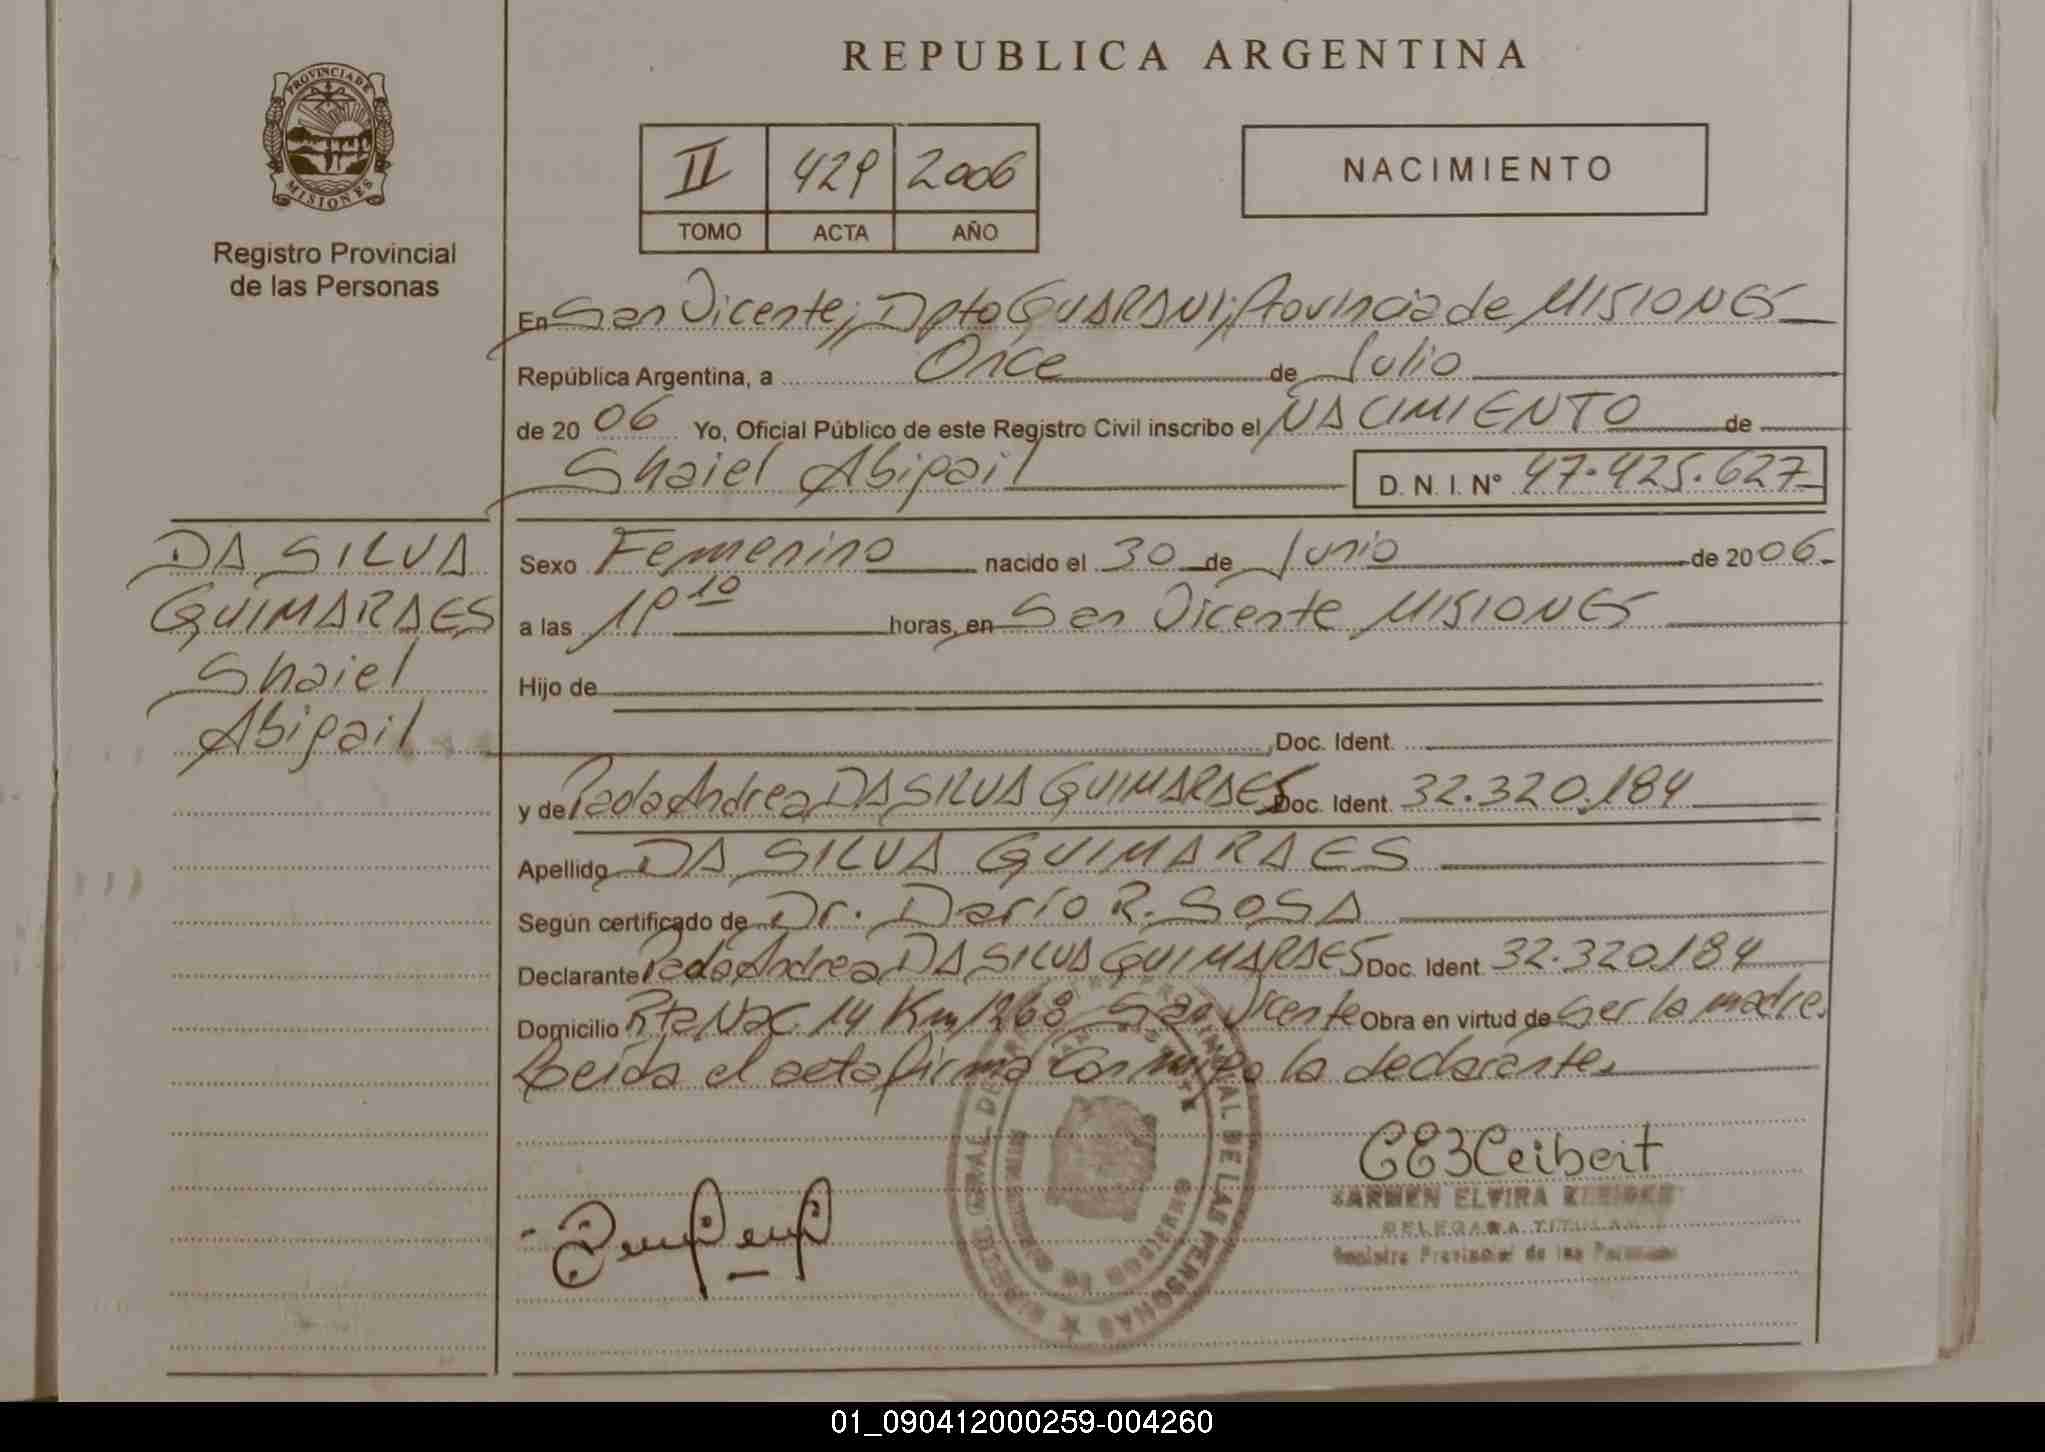 REPUBLICA ARGENTINA
PROVINCIA DE
MISIONES
Registro Provincial
de las Personas
II 429 2006
TOMO ACTA AÑO
NACIMIENTO
En San Vicente; Dpto GUARANI; Provincia de MISIONES
República Argentina, a Once de Julio
de 2006 Yo, Oficial Público de este Registro Civil inscribo el NACIMIENTO de
Shaiel Abigail D. N. I. Nº 47.425.627
DA SILVA
GUIMARAES
Shaiel
Abigail
Sexo Femenino nacido el 30 de Junio de 2006.
a las 19 10 horas, en San Vicente MISIONES
Hijo de
Doc. Ident.
y de Paola Andrea DA SILVA GUIMARAES Doc. Ident. 32.320.184
Apellido DA SILVA GUIMARAES
Según certificado de Dr. Darío R. SOSA
Declarante Paola Andrea DA SILVA GUIMARAES Doc. Ident 32.320.184
Domicilio Rta Nac. 14 Km 1268 San Vicente Obra en virtud de ser la madre.
Leida el acta firma conmigo la declarante.
CARMEN ELVIRA
DELEGADA TITULAR
Registro Provincial de las Personas
01_090412000259-004260